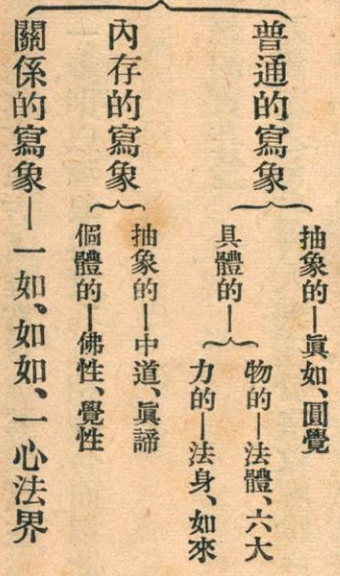 普通的寫象
抽象的—眞如、圓覺
具體的—
物的—法體、六大
力的—法身、如來
內存的寫象
抽象的—中道、眞諦
個體的—佛性、覺性
關係的寫象—一如、如如、一心法界